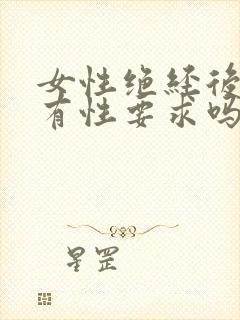 女性绝经後
有性要求吗
星罡